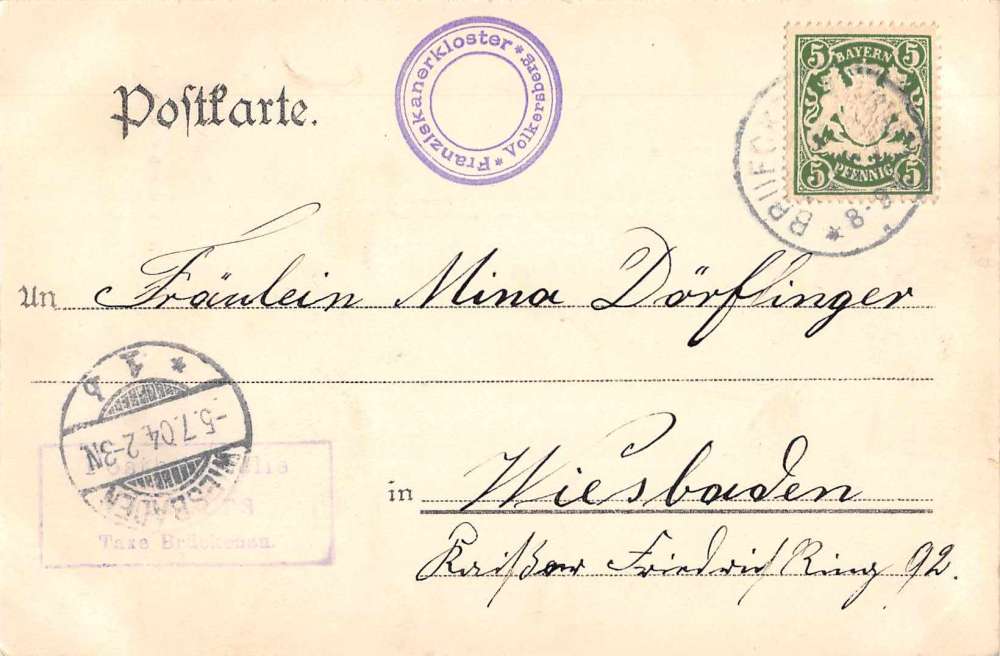 Postkarte.
* Franziskanerkloster * Volkersberg
5 BAYERN 5
5 PFENNIG 5
* 8-9
An Fräulein Mina Dörflinger
* 1 b
-5.7.04. 2-3N.
WIESBADEN
Taxe Brückenau.
in Wiesbaden
Kaißer Friedrich Ring 92.